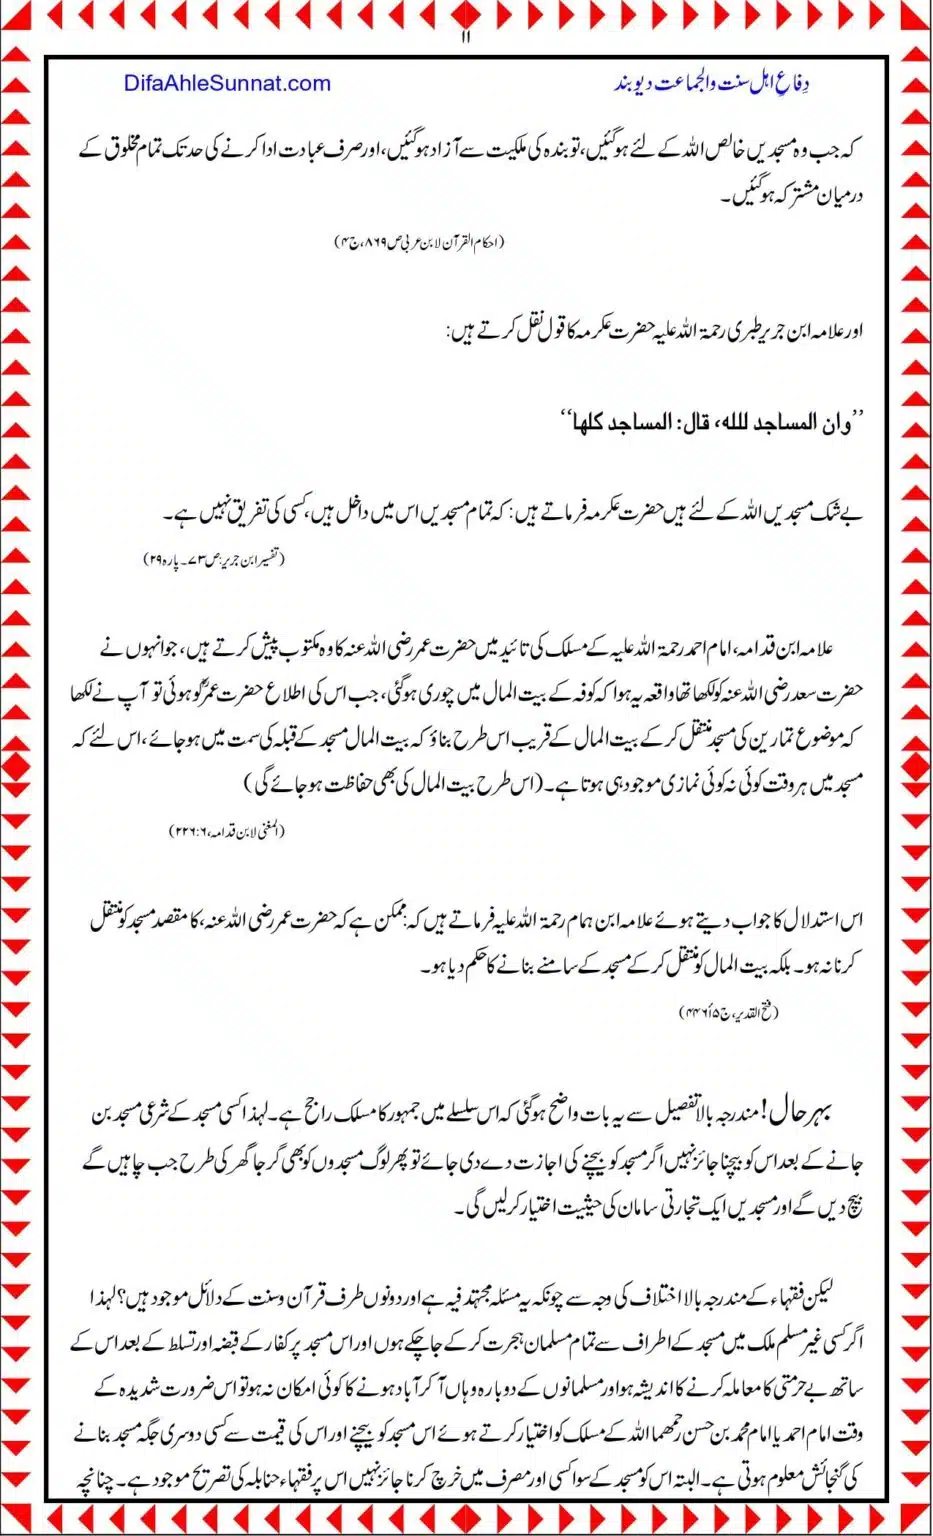 ۱۱
DifaAhleSunnat.com
دِفاعِ اہل سنت والجماعت دیوبند
کہ جب وہ مسجدیں خالص اللہ کے لئے ہوگئیں، تو بندہ کی ملکیت سے آزاد ہوگئیں، اور صرف عبادت ادا کرنے کی حد تک تمام مخلوق کے
درمیان مشترکہ ہوگئیں۔
(احکام القرآن لابن عربی ص۸۶۹، ج۴)
اور علامہ ابن جریر طبری رحمۃ اللہ علیہ حضرت عکرمہ کا قول نقل کرتے ہیں:
”وان المساجد لله، قال: المساجد كلها“
بے شک مسجدیں اللہ کے لئے ہیں حضرت عکرمہ فرماتے ہیں: کہ تمام مسجدیں اس میں داخل ہیں، کسی کی تفریق نہیں ہے۔
(تفسیر ابن جریر: ص۷۳۔ پارہ ۲۹)
علامہ ابن قدامہ، امام احمد رحمۃ اللہ علیہ کے مسلک کی تائید میں حضرت عمر رضی اللہ عنہ کا وہ مکتوب پیش کرتے ہیں، جو انہوں نے
حضرت سعد رضی اللہ عنہ کو لکھا تھا واقعہ یہ ہوا کہ کوفہ کے بیت المال میں چوری ہوگئی، جب اس کی اطلاع حضرت عمرؓ کو ہوئی تو آپ نے لکھا
کہ موضوع تمارین کی مسجد منتقل کر کے بیت المال کے قریب اس طرح بناؤ کہ بیت المال مسجد کے قبلہ کی سمت میں ہو جائے، اس لئے کہ
مسجد میں ہر وقت کوئی نہ کوئی نمازی موجود ہی ہوتا ہے۔ (اس طرح بیت المال کی بھی حفاظت ہو جائے گی)
(المغنی لابن قدامہ، ۲۲۶:۶)
اس استدلال کا جواب دیتے ہوئے علامہ ابن ہمام رحمۃ اللہ علیہ فرماتے ہیں کہ: ممکن ہے کہ حضرت عمر رضی اللہ عنہ، کا مقصد مسجد کو منتقل
کرنا نہ ہو۔ بلکہ بیت المال کو منتقل کر کے مسجد کے سامنے بنانے کا حکم دیا ہو۔
(فتح القدیر، ج۵/۴۴۶)
بہر حال! مندرجہ بالا تفصیل سے یہ بات واضح ہوگئی کہ اس سلسلے میں جمہور کا مسلک راجح ہے۔ لہذا کسی مسجد کے شرعی مسجد بن
جانے کے بعد اس کو بیچنا جائز نہیں اگر مسجد کو بیچنے کی اجازت دے دی جائے تو پھر لوگ مسجدوں کو بھی گرجا گھر کی طرح جب چاہیں گے
بیچ دیں گے اور مسجدیں ایک تجارتی سامان کی حیثیت اختیار کرلیں گی۔
لیکن فقہاء کے مندرجہ بالا اختلاف کی وجہ سے چونکہ یہ مسئلہ مجتہد فیہ ہے اور دونوں طرف قرآن وسنت کے دلائل موجود ہیں؟ لہذا
اگر کسی غیر مسلم ملک میں مسجد کے اطراف سے تمام مسلمان ہجرت کر کے جا چکے ہوں اور اس مسجد پر کفار کے قبضہ اور تسلط کے بعد اس کے
ساتھ بے حرمتی کا معاملہ کرنے کا اندیشہ ہو اور مسلمانوں کے دوبارہ وہاں آ کر آباد ہونے کا کوئی امکان نہ ہو تو اس ضرورت شدیدہ کے
وقت امام احمد یا امام محمد بن حسن رحمھما اللہ کے مسلک کو اختیار کرتے ہوئے اس مسجد کو بیچنے اور اس کی قیمت سے کسی دوسری جگہ مسجد بنانے
کی گنجائش معلوم ہوتی ہے۔ البتہ اس کو مسجد کے سوا کسی اور مصرف میں خرچ کرنا جائز نہیں اس پر فقہاء حنابلہ کی تصریح موجود ہے۔ چنانچہ